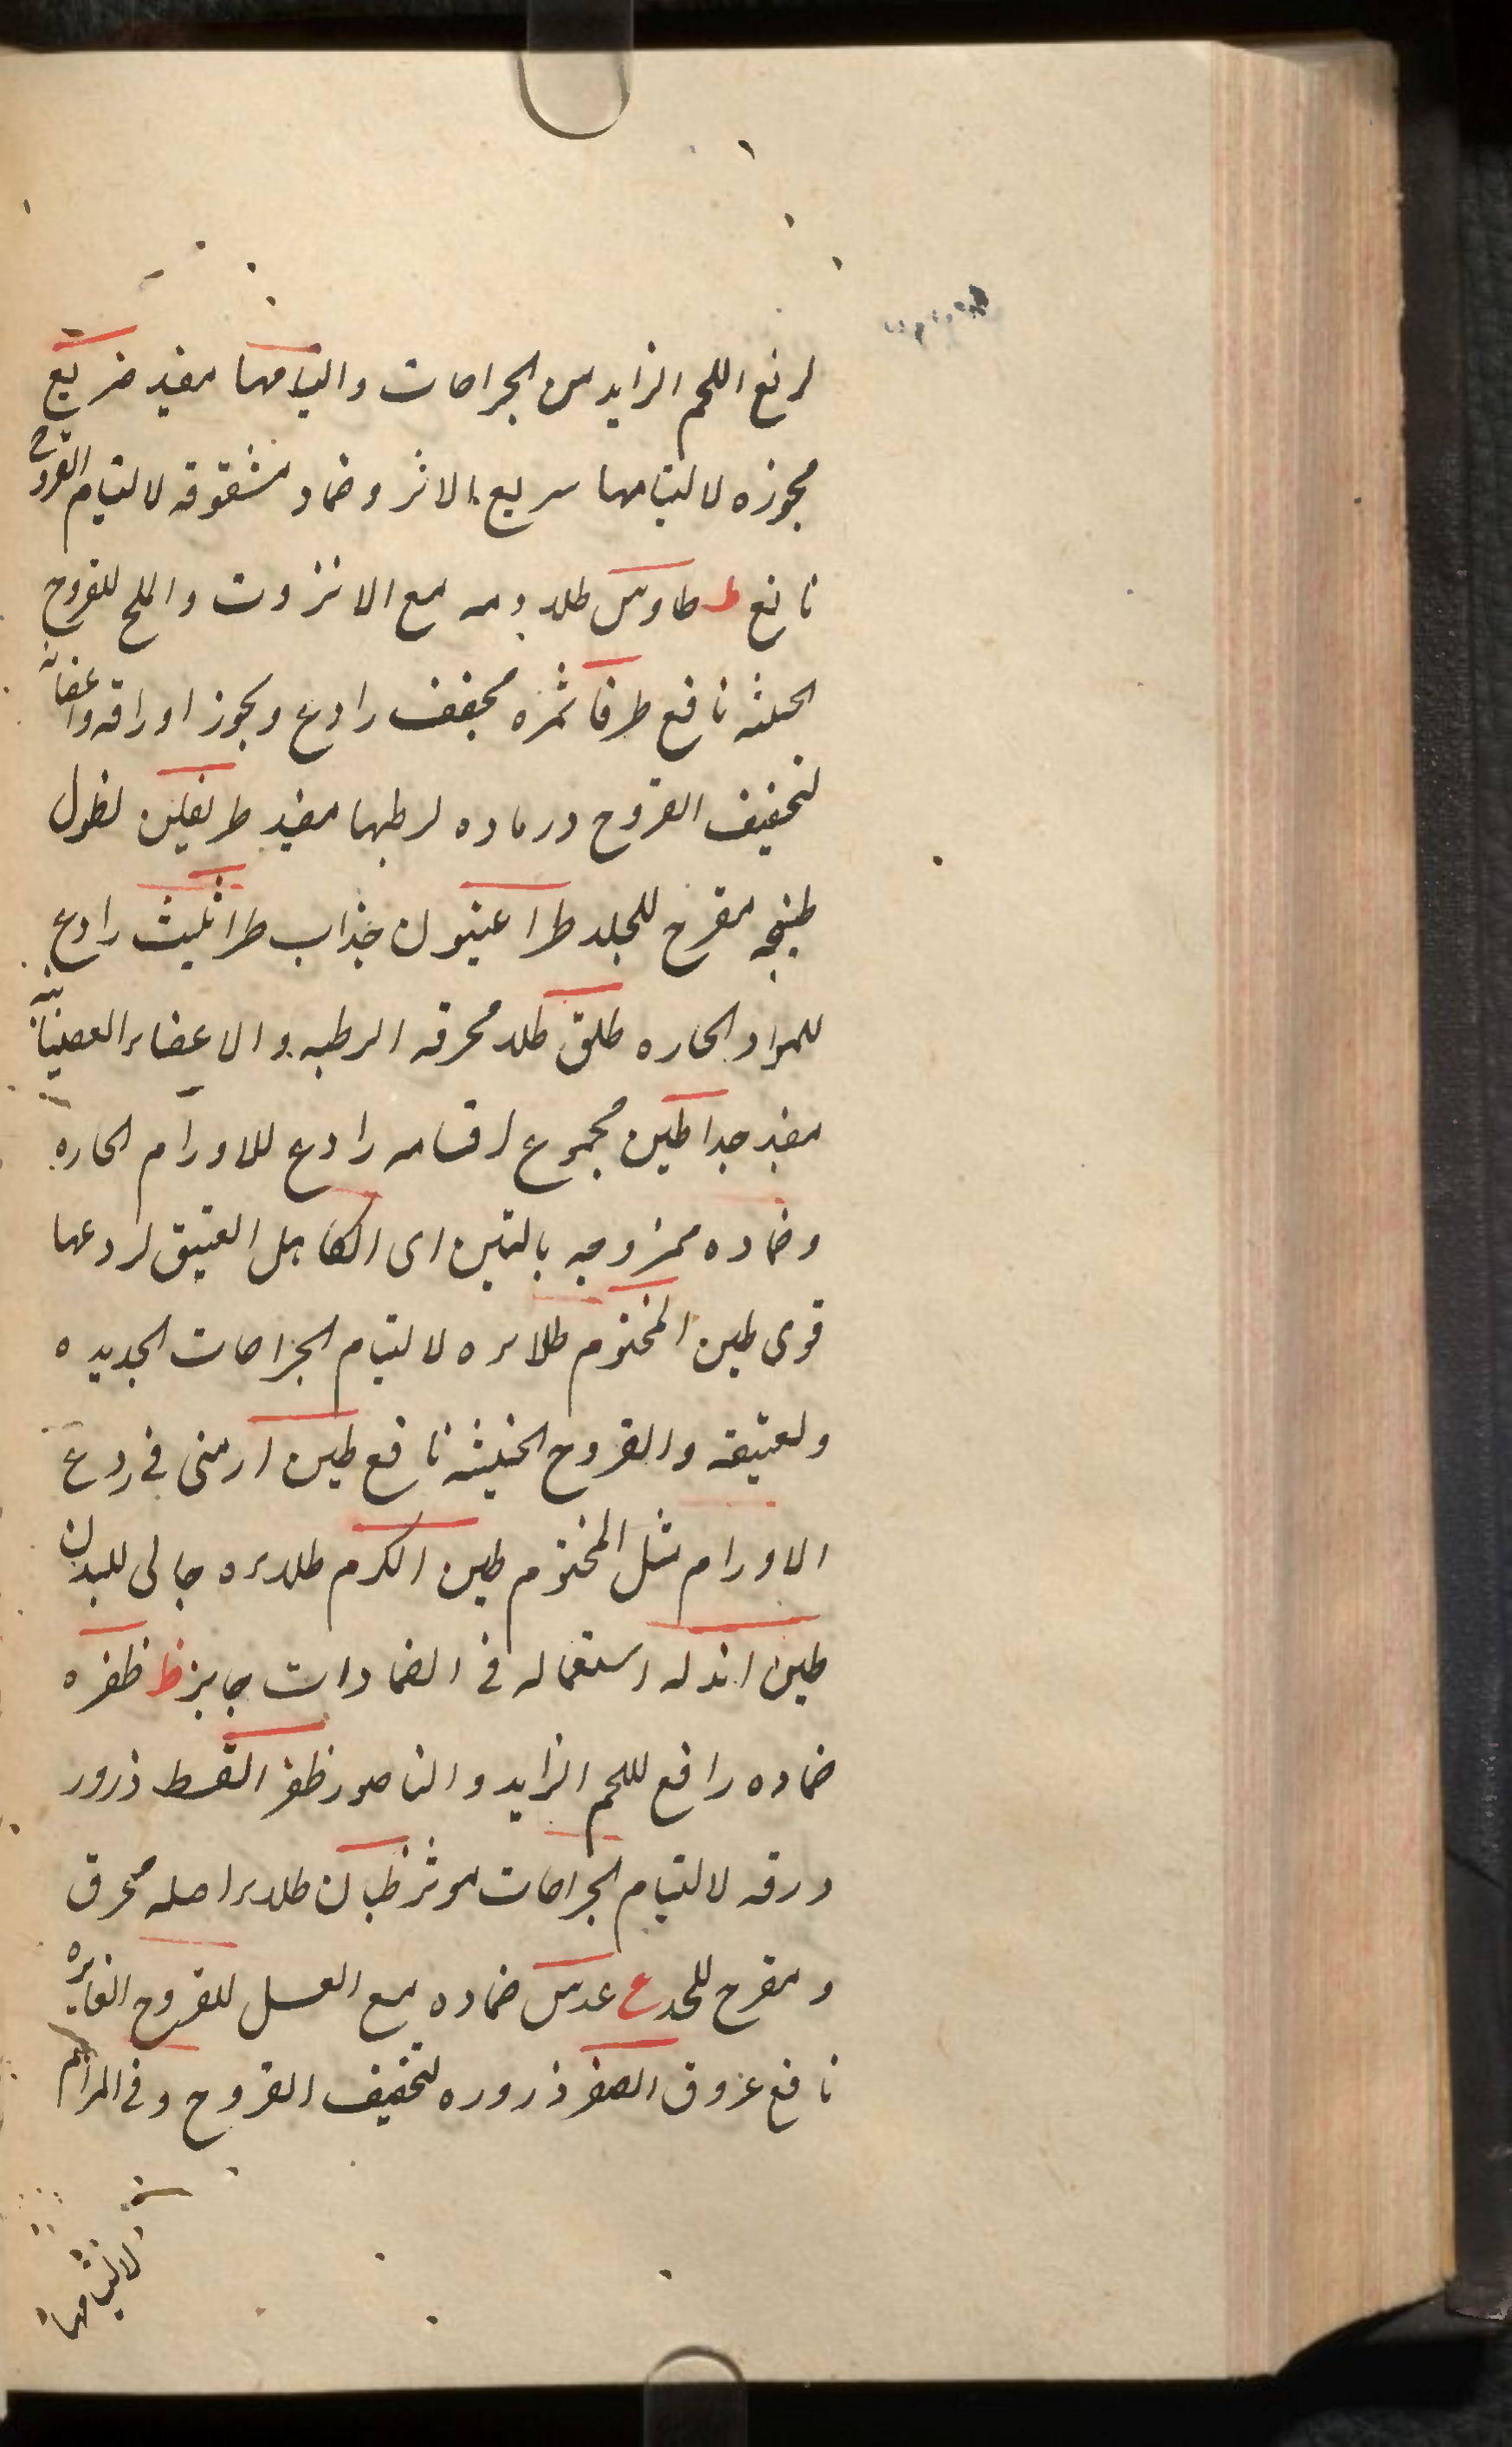 لرفع اللحم الزايد من الجراحات والتيامها مفيد ضريع
مجوزه لالتيامها سريع الاثر وضماد مشقوقه لالتيام القروح
نافع ط طاوس طلاء دمه مع الانزروت والملح للقروح
الخبيثه نافع طرفا ثمره مجفف رادع ويجوز اوراقه واغصانه
لتجفيف القروح ورماده لرطبها مفيد طريفلن نطول
طبيخه مقرح للجلد طراغيون جذاب طراثيث رادع
للمواد الحاره طلق طلاء محرقه الرطبه والاعضاء العصبانيه
مفيد جدا طين مجموع اقسامه رادع للاورام الحاره
وضماده ممزوجه بالتبن اى الكاهل العتيق لردعها
قوى طين المختوم طلائه لالتيام الجراحات الجديده
ولعتيقه والقروح الخبيثه نافع طين ارمنى فى ردع
الاورام مثل المختوم طين الكرم طلاءه جالى للبدن
طين اندله استعماله فى الضمادات جايز ظ ظفره
ضماده رافع للحم الزايد والناصور ظفر القسط ذرور
ورقه لالتيام الجراحات موثر ظيان طلاء اصله محرق
ومقرح للجلد ع عدس ضماده مع العسل للقروح الغايره
نافع عروق الصفر ذروره لتجفيف القروح وفى المراهم
لالتيامها